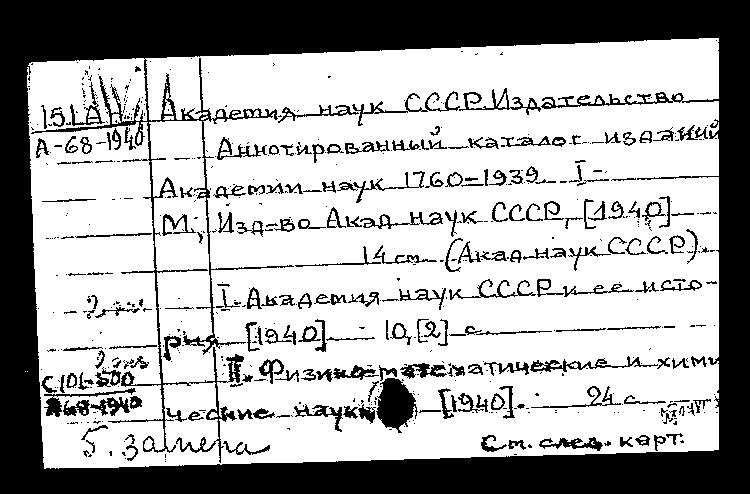 151 А
А-68-1940
Академия наук СССР. Издательство
Аннотированный каталог изданий
Академии наук 1760-1939. I-
М., Изд-во Акад. наук СССР, [1940]
14 см. (Акад. наук СССР).
2 экз
I. Академия наук СССР и ее исто-
рия [1940]. 10, [2] с.
2 экз
C101-500
А68-1940
II. Физико-математические и хими
ческие науки [1940]. 24 с.
5. замена
См. след. карт.